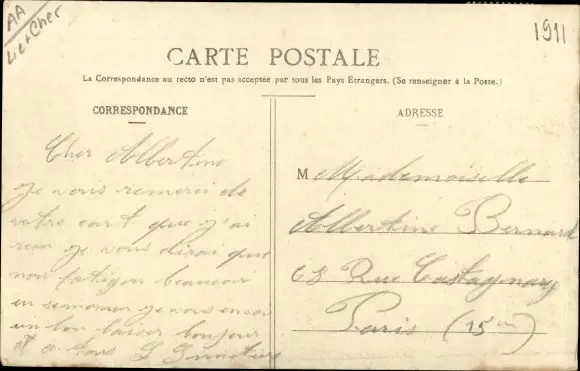 AA
Lier Cher
1911
CARTE POSTALE
La Correspondance au recto n'est pas acceptée par tous les Pays Étrangers. (Se renseigner à la Poste.)
CORRESPONDANCE
Cher Albertine
je vous remerci de
votre cart que j'ai
recu je vous dirai que
nou fatigon beaucou
en se moman je vous envoi
un bon baiser bonjour
a tous
ADRESSE
M Mademoiselle
Albertine Bernard
63 Rue Castagnary
Paris (15em)